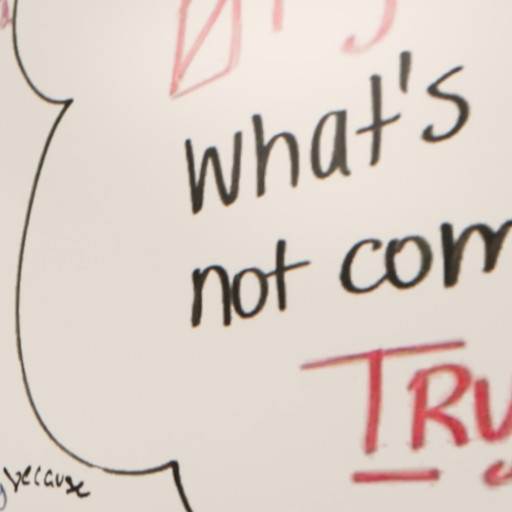 what's
not com
TRU
because